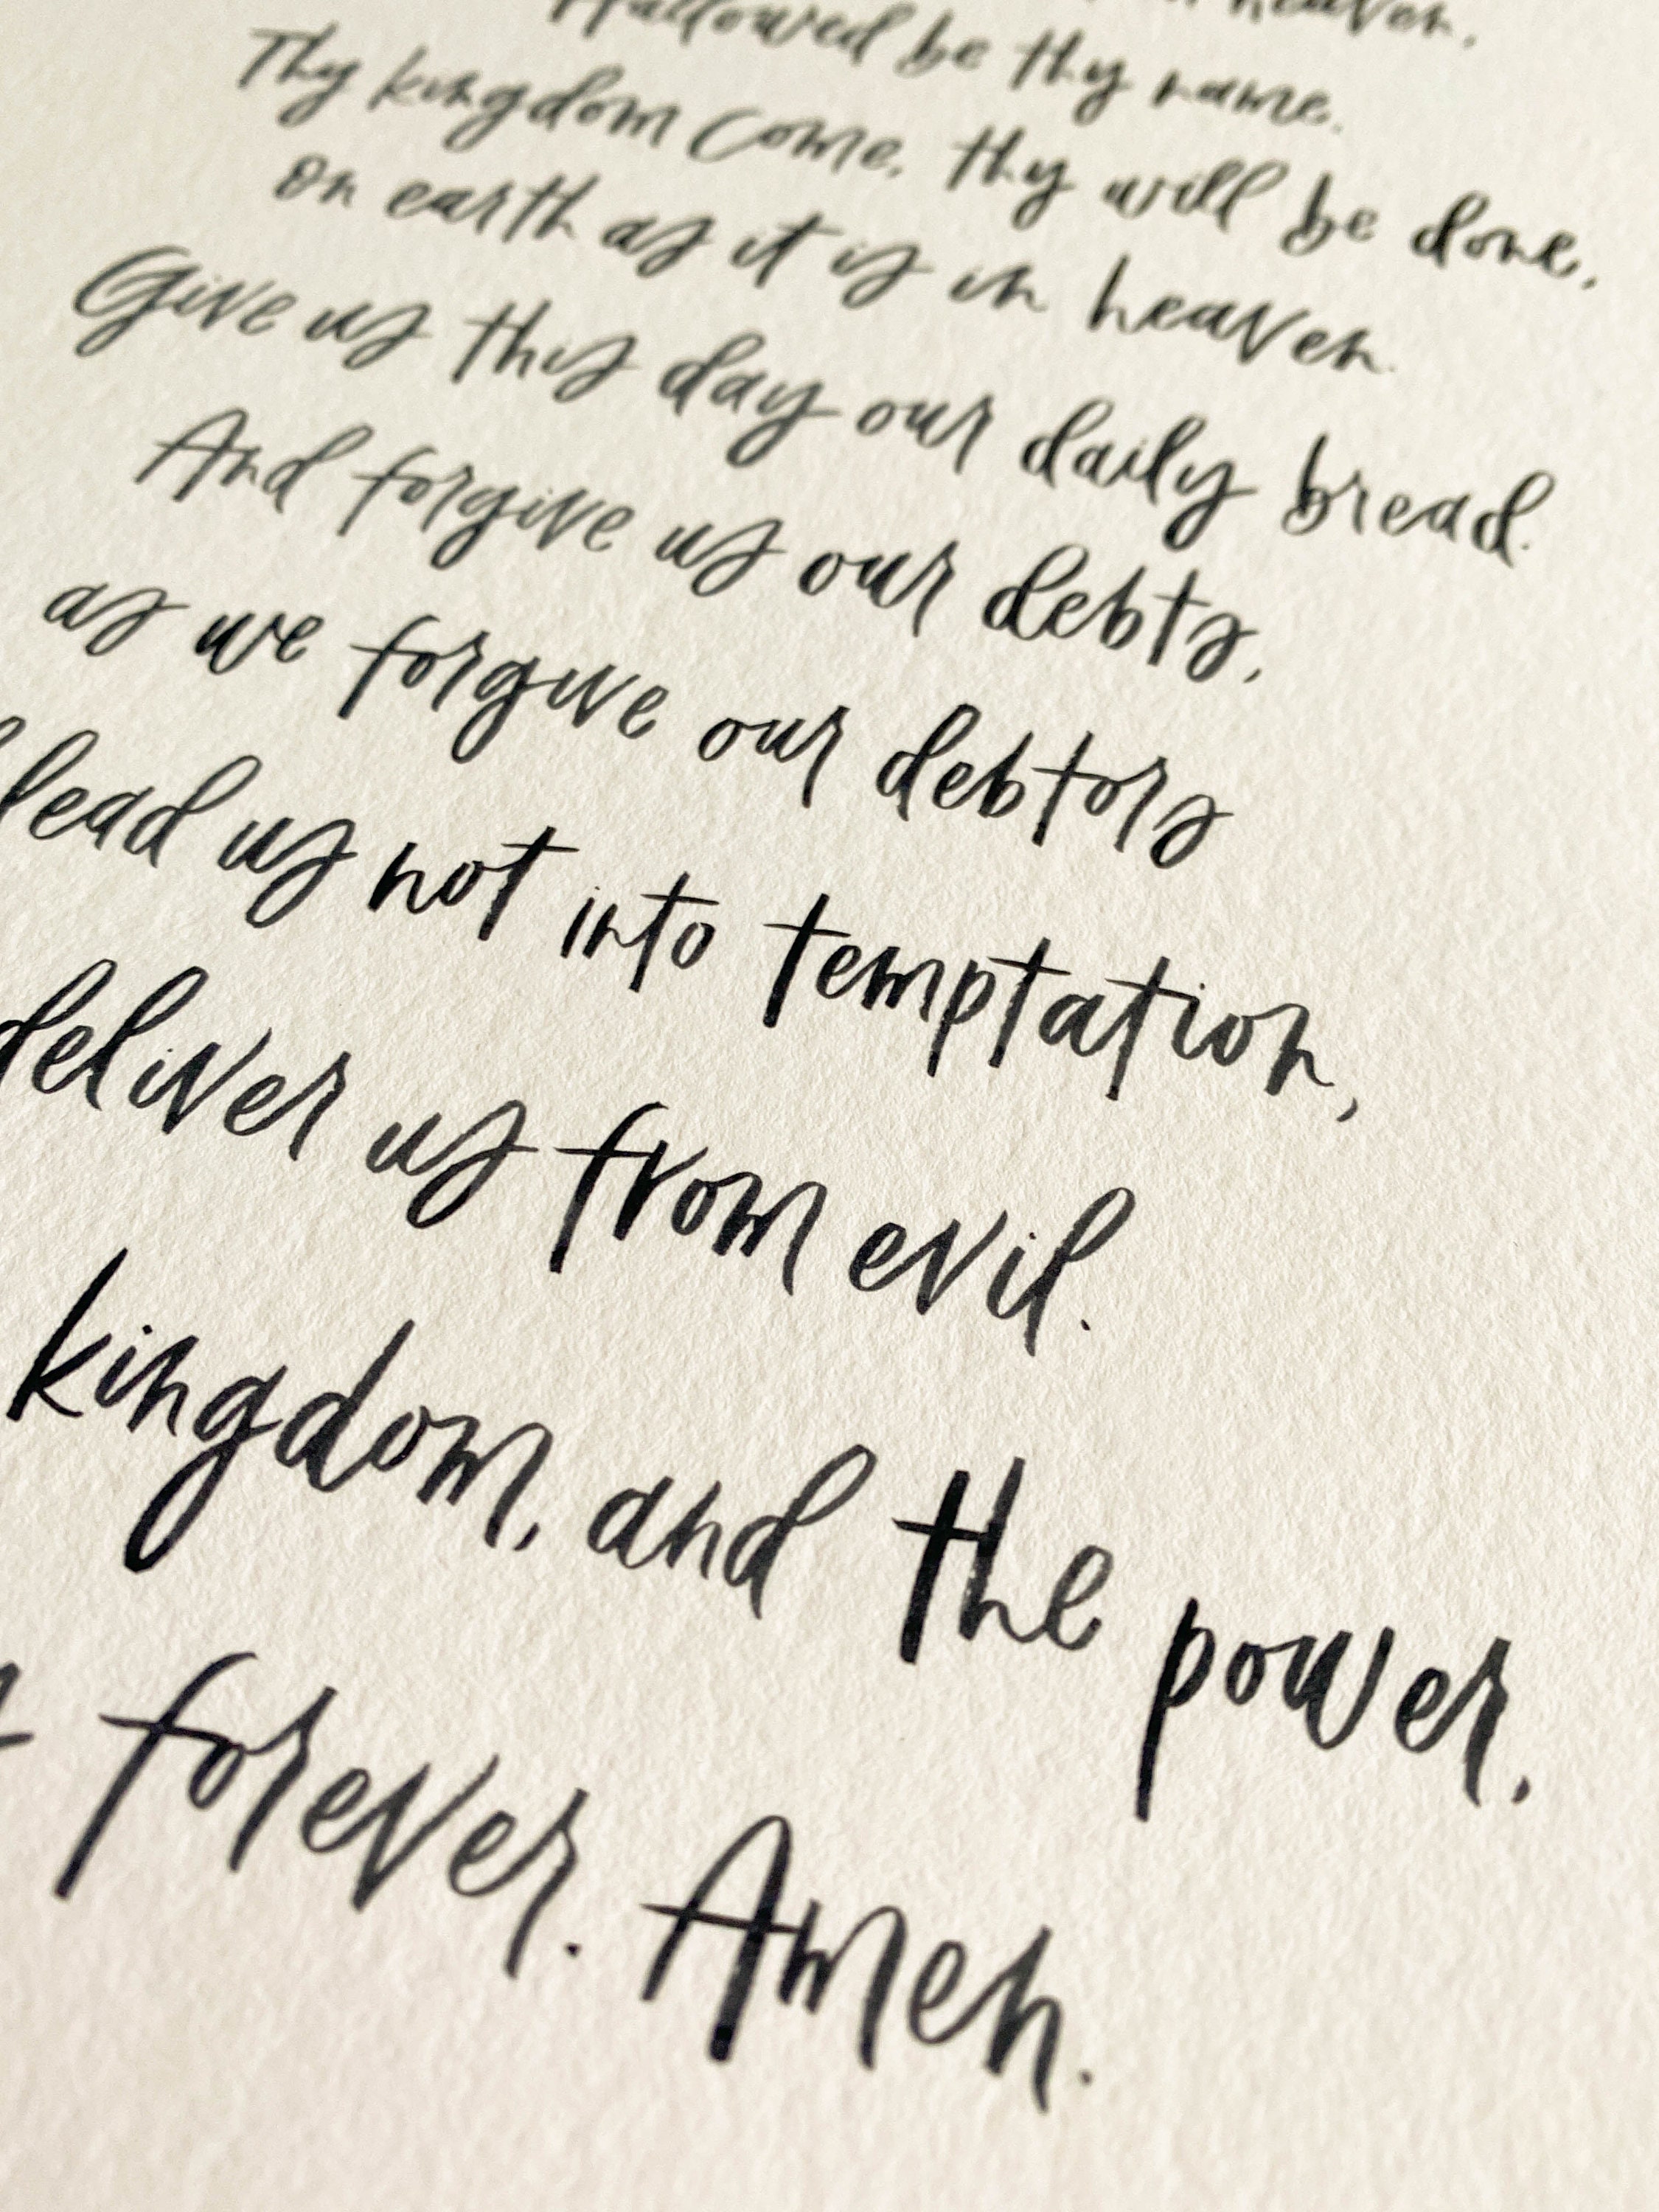 heaven,
Hallowed be thy name.
Thy kingdom come, thy will be done,
on earth as it is in heaven.
Give us this day our daily bread.
And forgive us our debts,
as we forgive our debtors
lead us not into temptation,
deliver us from evil.
kingdom, and the power,
forever. Amen.